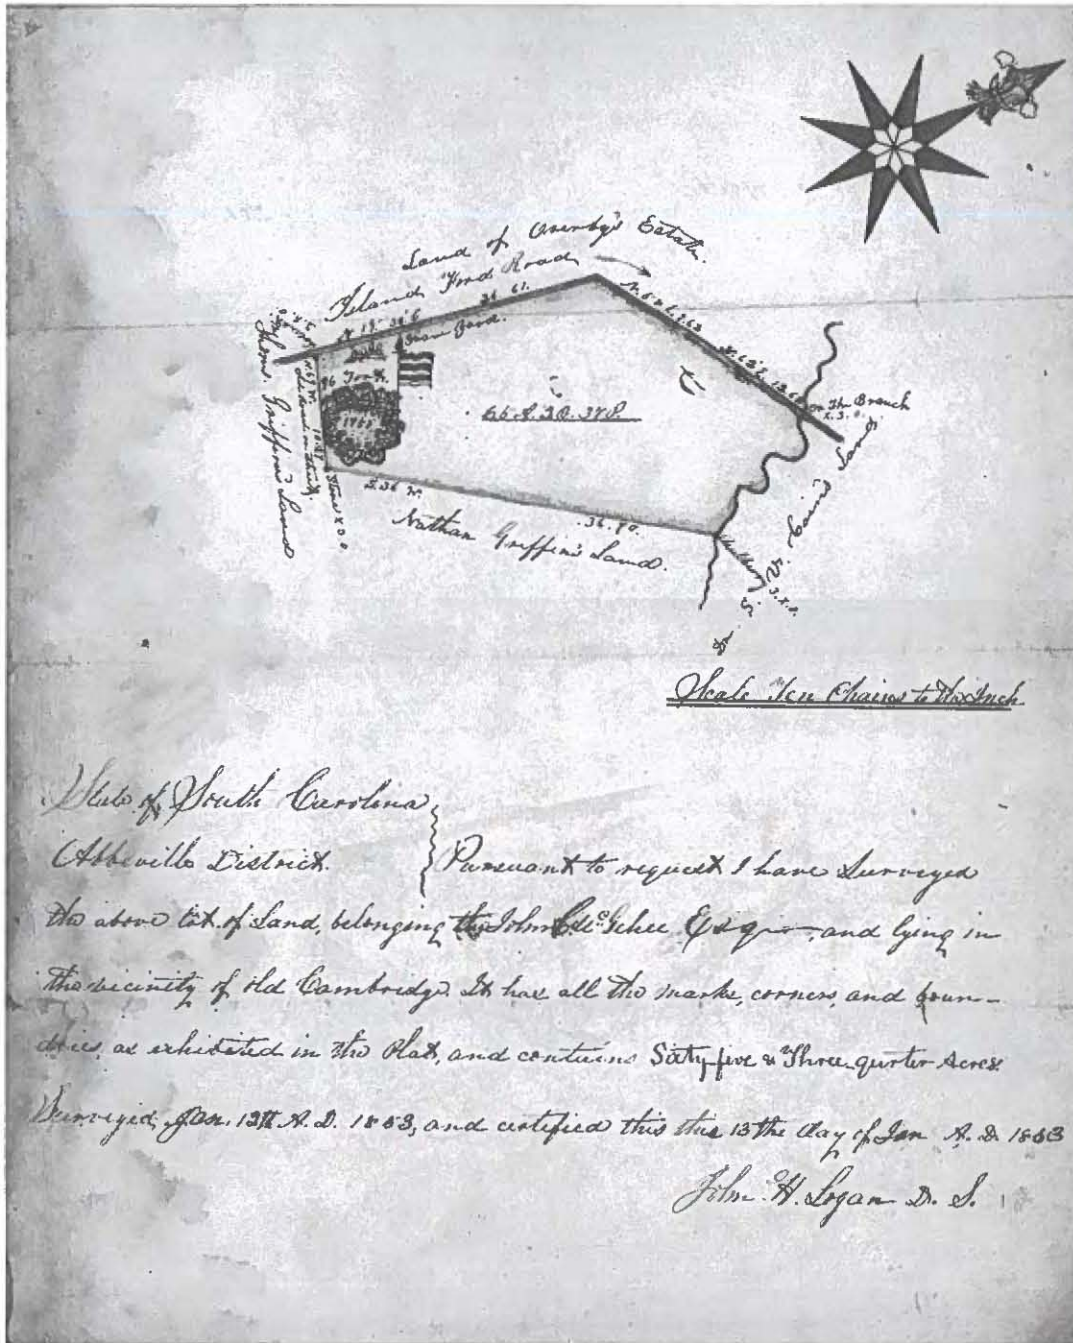 Land of Estate.
Island Ford Road
N 19° 30' E
36 61.
N. 63° E. 13.60
on the Branch
X. 3. 0.
96
Fort.
10.48
Stone X 3. 0
S. 36 W.
36. 80.
Thos. Griffin's Land
Nathan Griffin's Land.
Land
X. 3. 0.
Scale Ten Chains to the Inch
State of South Carolina
Abbeville District. Pursuant to request I have Surveyed
the above of Land, belonging John C McGehee Esqr and lying in
the vicinity of old Cambridge. It has all the marks, corners, and boun-
daries, as exhibited in the Plat, and contains Sixty five & Three-qurter Acres
Surveyed, Jan. 12th A. D. 1853, and certified this this 13the day of Jan A. D. 1853
John H. Logan D. S.